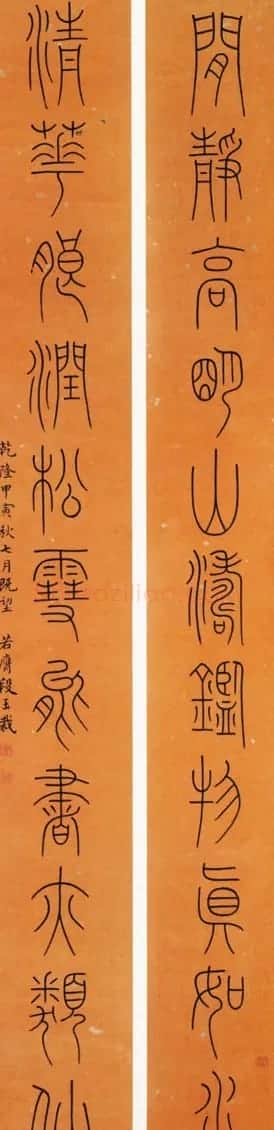 閒靜高朙山濤鑑物眞如水
清華朖潤松雪能書亦類仙
乾隆甲寅秋七月既望 若膺段玉裁